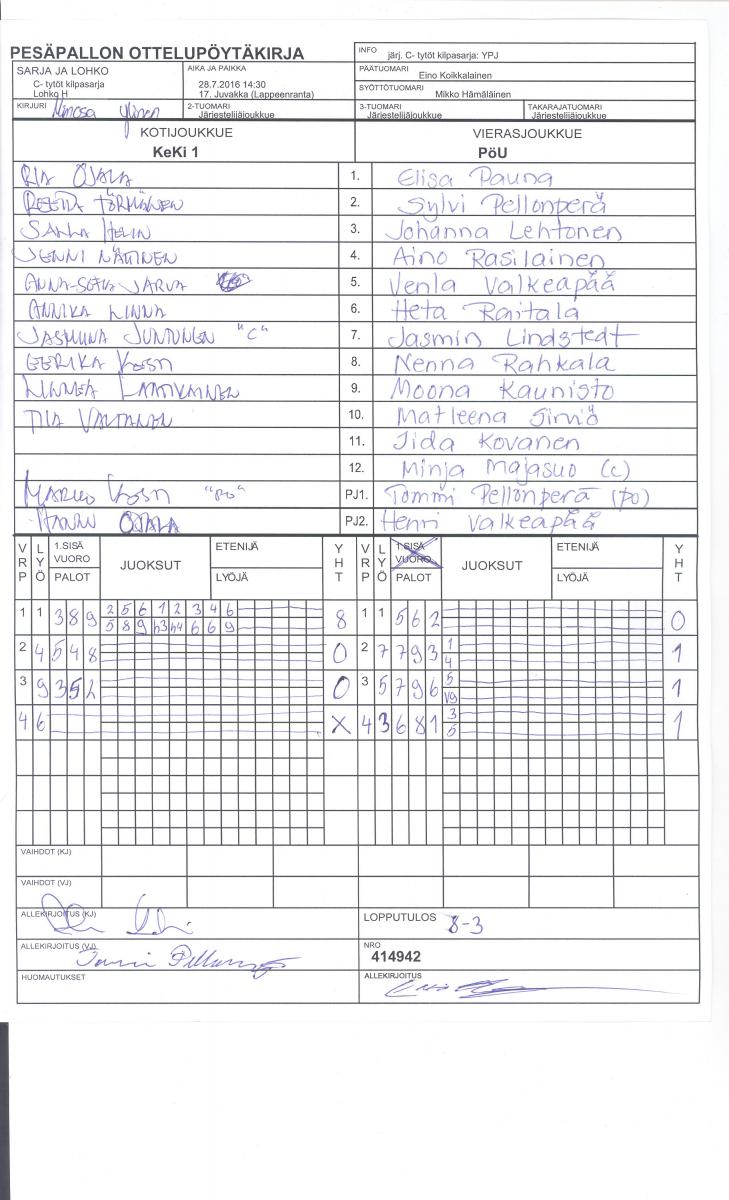 PESÄPALLON OTTELUPÖYTÄKIRJA
INFO järj. C- tytöt kilpasarja: YPJ
SARJA JA LOHKO
C- tytöt kilpasarja
Lohko H
AIKA JA PAIKKA
28.7.2016 14:30
17. Juvakka (Lappeenranta)
PÄÄTUOMARI Eino Koikkalainen
SYÖTTÖTUOMARI Mikko Hämäläinen
KIRJURI Mimosa
2-TUOMARI
Järjestelijäjoukkue
3-TUOMARI
Järjestelijäjoukkue
TAKARAJATUOMARI
Järjestelijäjoukkue
KOTIJOUKKUE VIERASJOUKKUE
KeKi 1 PöU
RIA OJALA 1. Elisa Pauna
REETTA TÖRMÄNEN 2. Sylvi Pellonperä
SANLA HELIN 3. Johanna Lehtonen
JENNI NÄTINEN 4. Aino Rasilainen
ANNA-SOFIA JARVA 5. Venla Valkeapää
ANNIKA LINNA 6. Heta Raitala
JASMIINA JUNTUNEN "C" 7. Jasmin Lindstedt
EERIKA KOSTI 8. Nenna Rahkala
LINNEA LAATIKAINEN 9. Moona Kaunisto
TIIA VALTANEN 10. Matleena Sirviö
11. Iida Kovanen
12. Minja Majasuo (c)
MARKO KOSTI "PO" PJ1. Tommi Pellonperä (po)
HANNU OJALA PJ2. Henri Valkeapää
VRP LYÖ 1.SISÄ VUORO PALOT JUOKSUT ETENIJÄ LYÖJÄ YHT VRP LYÖ 1.SISÄ VUORO PALOT JUOKSUT ETENIJÄ LYÖJÄ YHT
1 1 3 8 9 2 5 6 1 2 3 4 6 8 1 1 5 6 2 0
5 8 9 h3 h4 6 6 9
2 4 5 4 8 0 2 7 7 9 3 1 1
4
3 9 3 5 2 0 3 5 7 9 6 5 1
V9
4 6 X 4 3 6 8 1 3 1
5
VAIHDOT (KJ)
VAIHDOT (VJ)
ALLEKIRJOITUS (KJ)
LOPPUTULOS 8-3
ALLEKIRJOITUS (VJ)
NRO
414942
HUOMAUTUKSET
ALLEKIRJOITUS